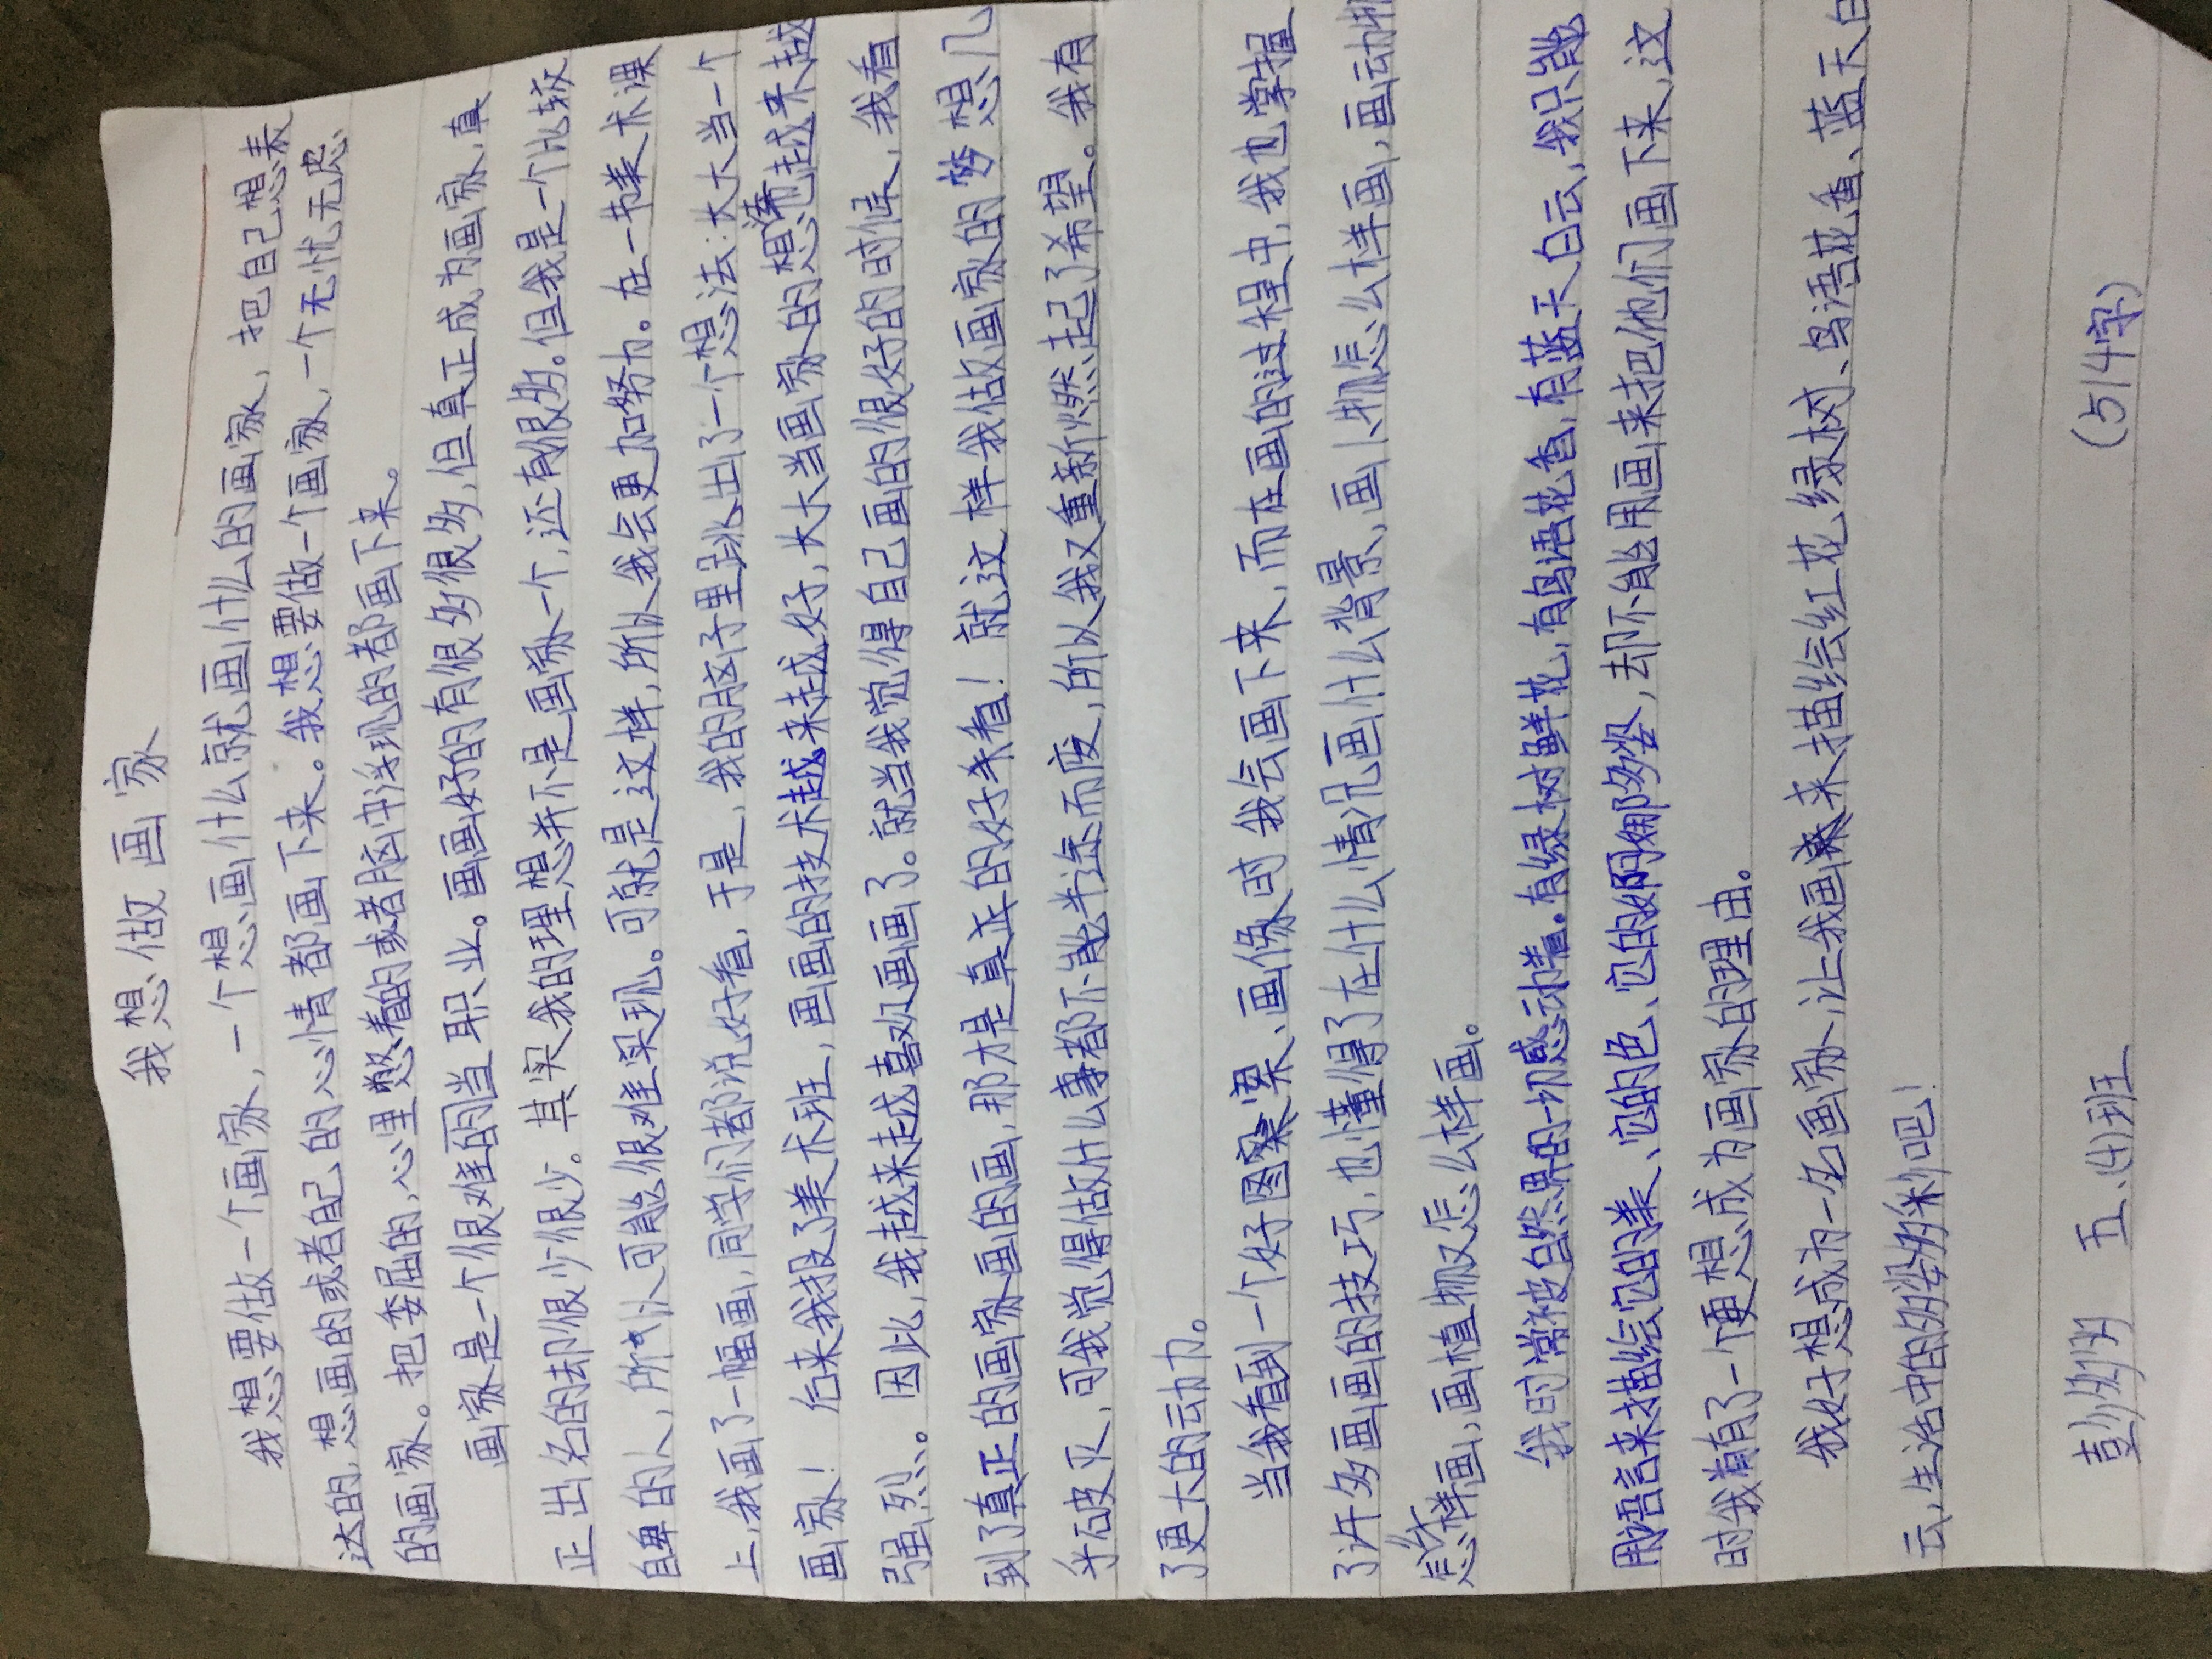 我想做画家
我想要做一个画家，一个想画什么就画什么的画家，把自己想表
达的，想画的或者自己的心情都画下来。我想要做一个画家，一个无忧无虑
的画家。把委屈的，心里憋着的或者脑中浮现的都画下来。
画家是一个很难的当职业。画画好的有很多很多，但真正成为画家，真
正出名的却很少很少。其实我的理想并不是画家一个，还有很多。但我是一个比较
自卑的人，所以可能很难实现。可就是这样，所以我会更加努力。在一节美术课
上，我画了一幅画，同学们都说好看，于是，我的脑子里跳出了一个想法：长大当一个
画家！后来我报了美术班，画画的技术越来越好，长大当画家的想法也越来越
强烈。因此，我越来越喜欢画画了。就当我觉得自己画的很好的时候，我看
到了真正的画家画的画，那才是真正的好看！就这样我做画家的梦想几
乎破灭，可我觉得做什么事都不能半途而废，所以我又重新燃起了希望。我有
了更大的动力。
当我看到一个好图案、画像时我会画下来，而在画的过程中，我也掌握
了许多画画的技巧，也懂得了在什么情况画什么背景，画人物怎么样画，画动物
怎样画，画植物又怎么样画。
我时常被自然界的一切感动着。有绿树鲜花，有鸟语花香，有蓝天白云，我只能
用语言来描绘它的美、它的色、它的婀娜多姿，却不能用画来把他们画下来，这
时我有了一个更想成为画家的理由。
我好想成为一名画家，让我画来描绘红花绿树、鸟语花香、蓝天白
云，生活中的多姿多彩吧！
彭 五、(4)班 (514字)